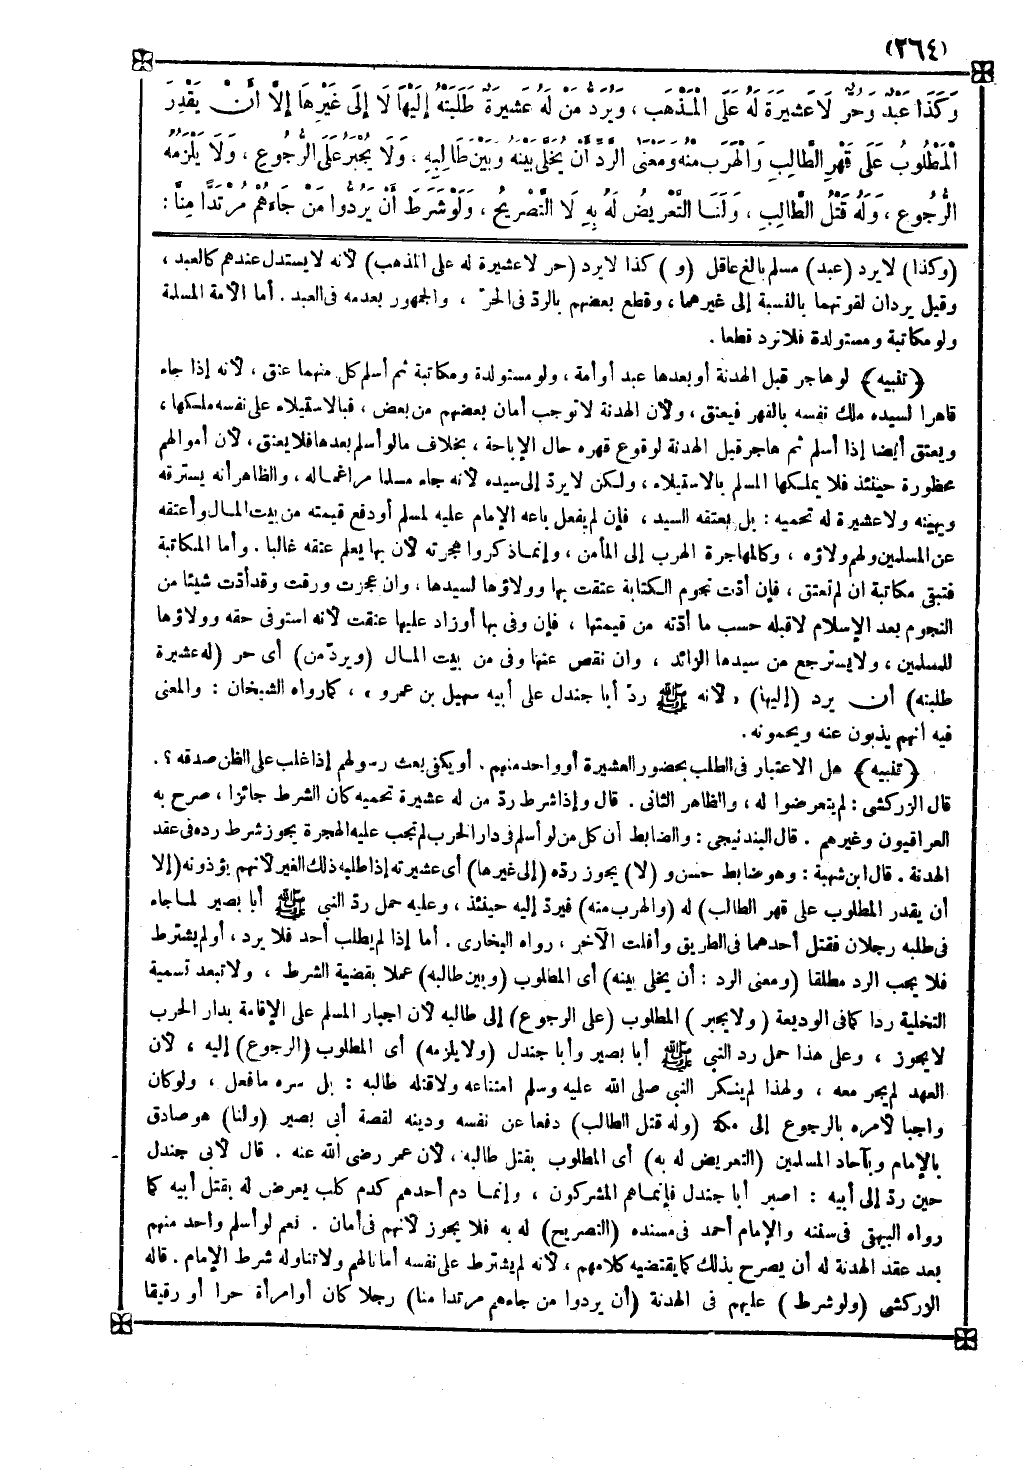 (٢٦٤)
وَكَذَا عَبْدٌ وَحُرٌّ لَا عَشِيرَةَ لَهُ عَلَى الْمَذْهَبِ ، وَيُرَدُّ مَنْ لَهُ عَشِيرَةٌ طَلَبَتْهُ إِلَيْهَا لَا إِلَى غَيْرِهَا إِلَّا أَنْ يَقْدِرَ
الْمَطْلُوبُ عَلَى قَهْرِ الطَّالِبِ وَالْهَرَبِ مِنْهُ وَمَعْنَى الرَّدِّ أَنْ يُخَلَّى بَيْنَهُ وَبَيْنَ طَالِبِهِ ، وَلَا يُجْبَرُ عَلَى الرُّجُوعِ ، وَلَا يَلْزَمُهُ
الرُّجُوعُ ، وَلَهُ قَتْلُ الطَّالِبِ ، وَلَنَا التَّعْرِيضُ لَهُ بِهِ لَا التَّصْرِيحُ ، وَلَوْ شَرَطَ أَنْ يَرُدُّوا مَنْ جَاءَهُمْ مُرْتَدًّا مِنَّا :
(وكذا) لا يرد (عبد) مسلم بالغ عاقل (و) كذا لا يرد (حر لا عشيرة له على المذهب) لأنه لا يستدل عندهم كالعبد ،
وقيل يردان لقوتهما بالنسبة إلى غيرهما ، وقطع بعضهم بالرد فى الحرّ ، والجمهور بعدمه فى العبد . أما الأمة المسلمة
ولو مكاتبة ومستولدة فلا ترد قطعا .
﴿ تنبيه ﴾ لو هاجر قبل الهدنة أو بعدها عبد أو أمة ، ولو مستولدة ومكاتبة ثم أسلم كل منهما عتق ، لأنه إذا جاء
قاهرا لسيده ملك نفسه بالقهر فيعتق ، ولأن الهدنة لا توجب أمان بعضهم من بعض ، فبالاستيلاء على نفسه ملكها ،
ويعتق أيضا إذا أسلم ثم هاجر قبل الهدنة لوقوع قهره حال الإباحة ، بخلاف مالو أسلم بعدها فلا يعتق ، لأن أموالهم
محظورة حينئذ فلا يملكها المسلم بالاستيلاء ، ولكن لا يردّ إلى سيده لأنه جاء مسلما مراغما له ، والظاهر أنه يسترقه
ويهينه ولا عشيرة له تحميه : بل يعتقه السيد ، فإن لم يفعل باعه الإمام عليه لمسلم أو دفع قيمته من بيت المال وأعتقه
عن المسلمين ولهم ولاؤه ، وكالمهاجرة الهرب إلى المأمن ، وإنما ذكروا هجرته لأن بها يعلم عتقه غالبا . وأما المكاتبة
فتبقى مكاتبة ان لم تعتق ، فإن أدّت نجوم الكتابة عتقت بها وولاؤها لسيدها ، وان عجزت ورقت وقد أدّت شيئا من
النجوم بعد الإسلام لا قبله حسب ما أدّته من قيمتها ، فإن وفى بها أو زاد عليها عتقت لأنه استوفى حقه وولاؤها
للمسلمين ، ولا يسترجع من سيدها الزائد ، وان نقص عنها وفى من بيت المال (ويردّ من) أى حر (له عشيرة
طلبته) أن يرد (إليها) ، لأنه ﷺ ردّ أبا جندل على أبيه سهيل بن عمرو ، ، كما رواه الشيخان : والمعنى
فيه أنهم يذبون عنه ويحمونه .
﴿ تنبيه ﴾ هل الاعتبار فى الطلب بحضور العشيرة أو واحد منهم . أو يكفى بعث رسولهم إذا غلب على الظن صدقه ؟ .
قال الزركشى : لم يتعرضوا له ، والظاهر الثانى . قال وإذا شرط ردّ من له عشيرة تحميه كان الشرط جائزا ، صرح به
العراقيون وغيرهم . قال البندنيجى : والضابط أن كل من لو أسلم فى دار الحرب لم تجب عليه الهجرة يجوز شرط رده فى عقد
الهدنة . قال ابن شهبة : وهو ضابط حسن و (لا) يجوز ردّه (إلى غيرها) أى عشيرته إذا طلبه ذلك الغير لأنهم يؤذونه (إلا
أن يقدر المطلوب على قهر الطالب) له (والهرب منه) فيردّ إليه حينئذ ، وعليه حمل ردّ النبى ﷺ أبا بصير لما جاء
فى طلبه رجلان فقتل أحدهما فى الطريق وأفلت الآخر ، رواه البخارى . أما إذا لم يطلب أحد فلا يرد ، أو لم يشترط
فلا يجب الرد مطلقا (ومعنى الرد : أن يخلى بينه) أى المطلوب (وبين طالبه) عملا بقضية الشرط ، ولا تبعد تسمية
التخلية ردا كما فى الوديعة (ولا يجبر) المطلوب (على الرجوع) إلى طالبه لأن اجبار المسلم على الإقامة بدار الحرب
لا يجوز ، وعلى هذا حمل رد النبى ﷺ أبا بصير وأبا جندل (ولا يلزمه) أى المطلوب (الرجوع) إليه ، لأن
العهد لم يجر معه ، ولهذا لم ينكر النبى صلى الله عليه وسلم امتناعه ولا قتله طالبه : بل سره ما فعل ، ولو كان
واجبا لأمره بالرجوع إلى مكة (وله قتل الطالب) دفعا عن نفسه ودينه لقصة أبى بصير (ولنا) هو صادق
بالإمام وبآحاد المسلمين (التعريض له به) أى المطلوب بقتل طالبه ، لأن عمر رضى الله عنه . قال لأبى جندل
حين ردّ إلى أبيه : اصبر أبا جندل فإنما هم المشركون ، وإنما دم أحدهم كدم كلب يعرض له بقتل أبيه كما
رواه البيهقى فى سننه والإمام أحمد فى مسنده (التصريح) له به فلا يجوز لأنهم فى أمان . نعم لو أسلم واحد منهم
بعد عقد الهدنة له أن يصرح بذلك كما يقتضيه كلامهم ، لأنه لم يشترط على نفسه أمانا لهم ولا تناوله شرط الإمام . قاله
الزركشى (ولو شرط) عليهم فى الهدنة (أن يردوا من جاءهم مرتدا منا) رجلا كان أو امرأة حرا أو رقيقا